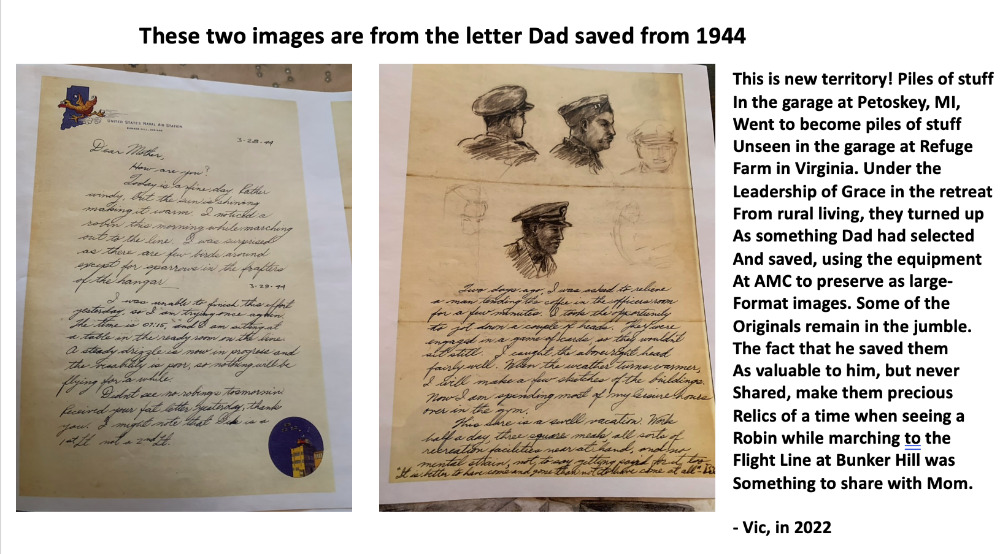 These two images are from the letter Dad saved from 1944
United States Naval Air Station
Bunker Hill, Indiana
3-28-44
Dear Mother,
How are you?
Today is a fine day. Rather
windy, but the sun is shining
making it warm. I noticed a
robin this morning while marching
out to the line. I was surprised
as there are few birds around
except for sparrows in the
of the hangar.
3-29-44
I was unable to finish this effort
yesterday, so I am trying once again.
The time is 0715, and I am sitting at
a table in the ready room on the line.
A steady drizzle is now in progress and
the is poor, so nothing will be
flying for a while.
Didn't see no robins
Received your fat letter yesterday, thank
you. I might note that is a
1st lt. not a 2nd lt.
Two days ago, I was asked to relieve
a man tending the office in the officers room
for a few minutes. I took the opportunity
to jot down a couple of heads. They were
engaged in a game of cards so they wouldn't
sit still. I caught the above head
fairly well. When the weather turns warmer,
I will make a few sketches of the buildings.
Now I am spending most of my leisure hours
over in the gym.
This here is a swell vacation. Work
half a day, three square meals, all sorts of
recreation facilities near at hand, and no
mental strain, not to say getting paid for it too.
"It is better to have come and gone than not to have come at all"
This is new territory! Piles of stuff
In the garage at Petoskey, MI,
Went to become piles of stuff
Unseen in the garage at Refuge
Farm in Virginia. Under the
Leadership of Grace in the retreat
From rural living, they turned up
As something Dad had selected
And saved, using the equipment
At AMC to preserve as large-
Format images. Some of the
Originals remain in the jumble.
The fact that he saved them
As valuable to him, but never
Shared, make them precious
Relics of a time when seeing a
Robin while marching to the
Flight Line at Bunker Hill was
Something to share with Mom.
- Vic, in 2022